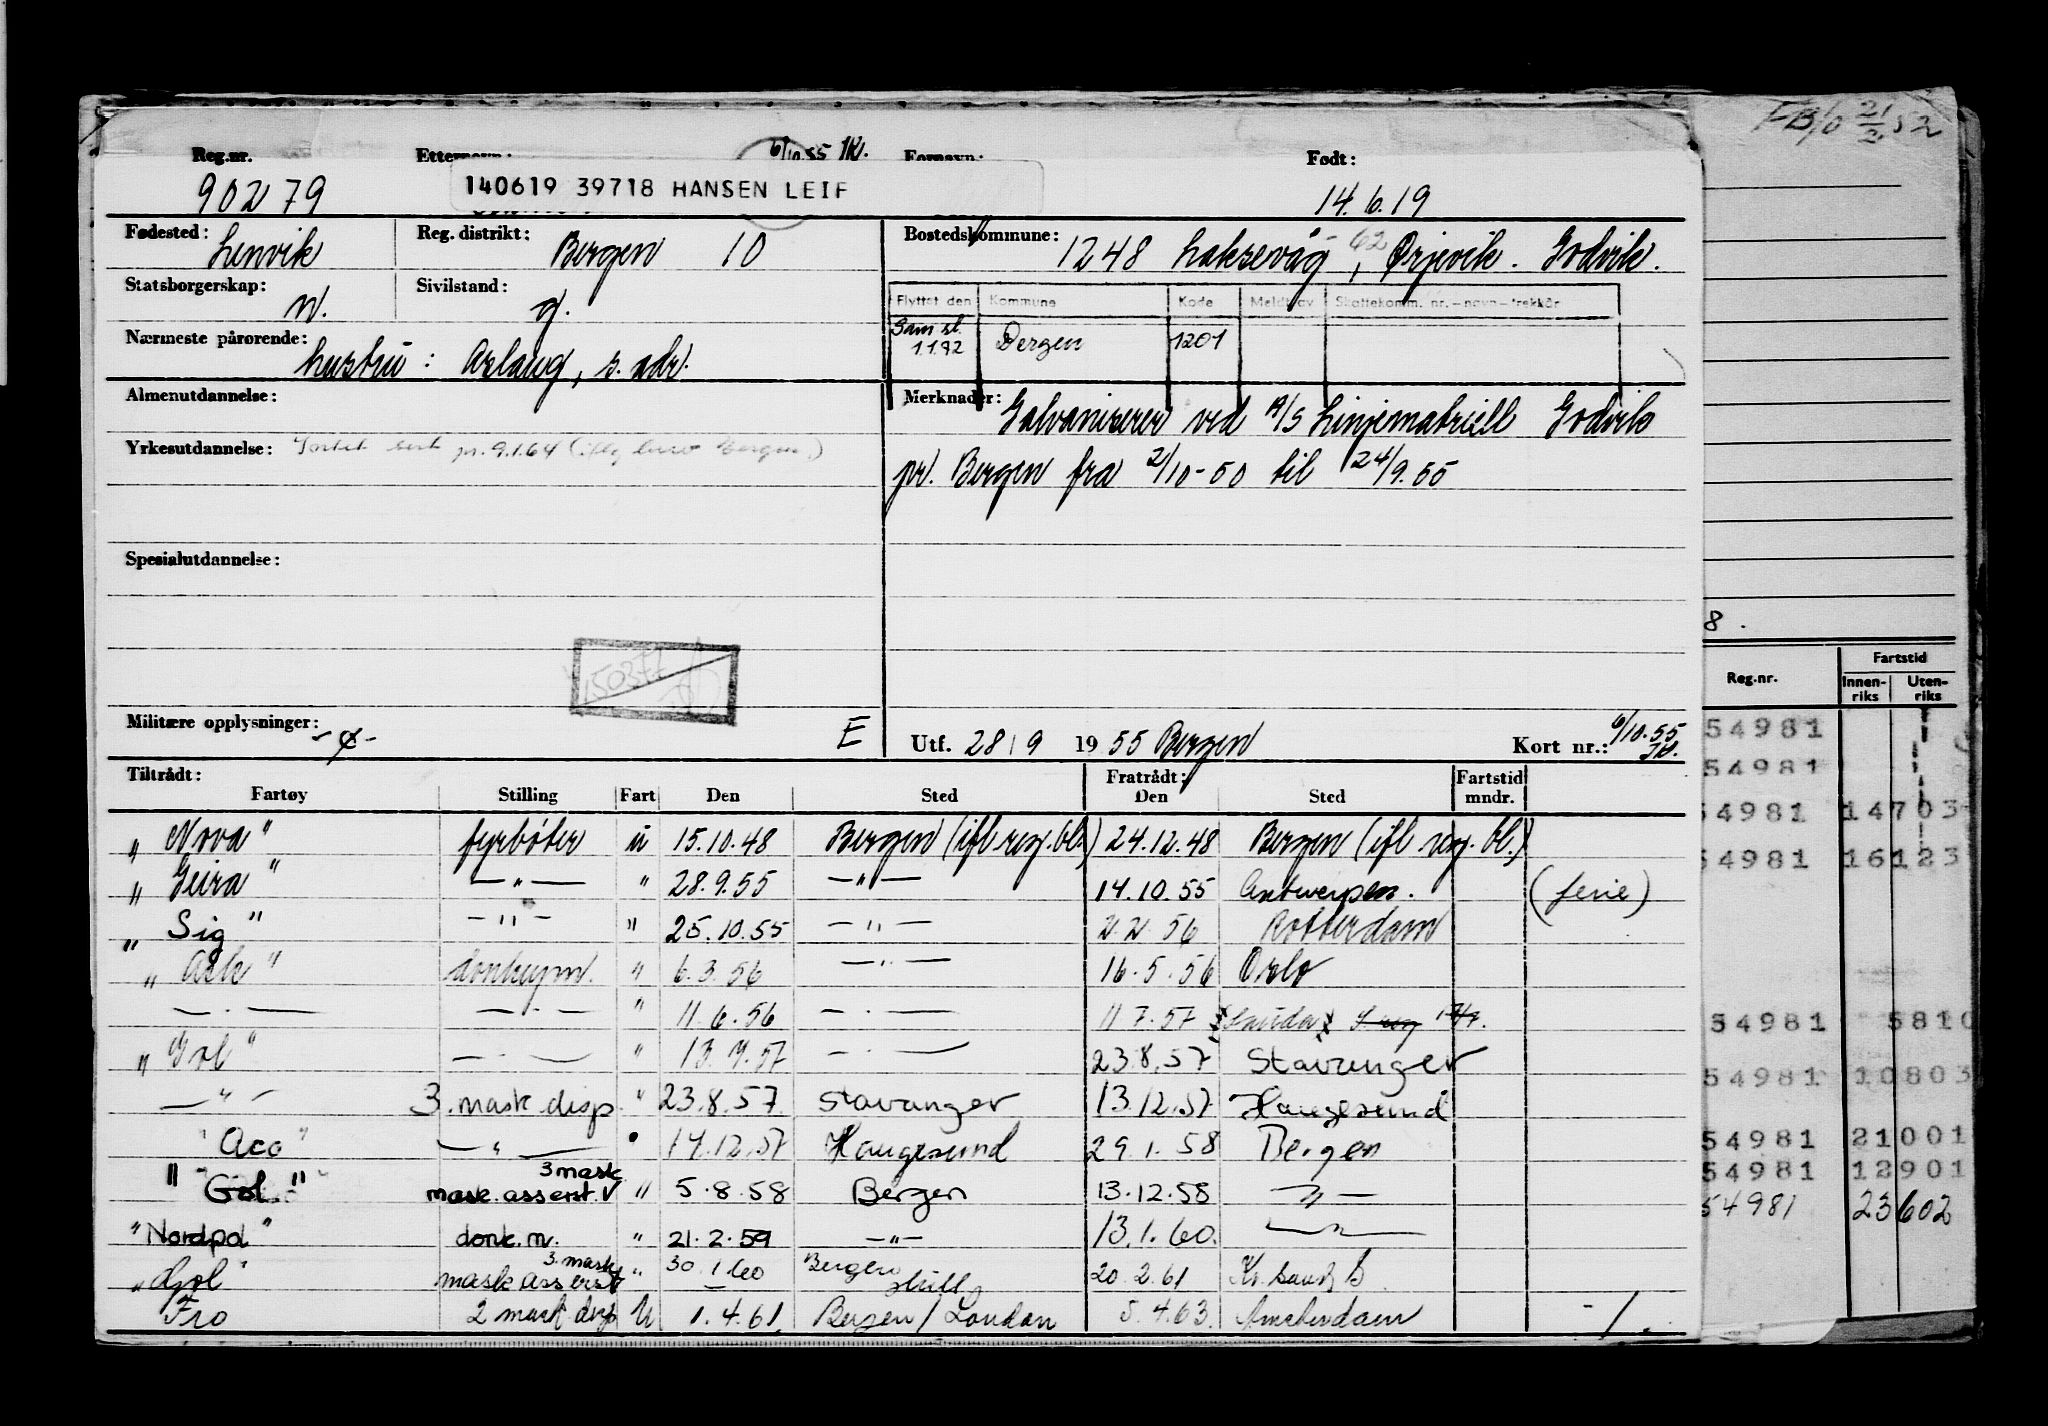 FB/o 21/2 52
Reg.nr. Etternavn: 6/10.55 Fornavn: Født:
90279 140619 39718 HANSEN LEIF 14.6.19
Fødested: Lenvik Reg. distrikt: Bergen 10 Bostedskommune: 1248 Laksevåg, 62 Ørjevik. Godvik.
Statsborgerskap: n. Sivilstand: g.
Flyttet den Kommune Kode Meldt av Skattekomm. nr.-navn-trekkår
Sam.sl. 1.1.72 Bergen 1201
Nærmeste pårørende: hustru: Aslaug, s. adr.
Almenutdannelse: Merknader: Galvaniserer ved A/S Linjematriell Godvik
Yrkesutdannelse: pr. 9.1.64
pr. Bergen fra 2/10-50 til 24/9.55
Spesialutdannelse:
8.
Reg.nr. Fartstid
Innen-riks Uten-riks
Militære opplysninger: -φ- E Utf. 28/9 1955 Bergen Kort nr.: 6/10.55
Tiltrådt: Fratrådt:
Fartøy Stilling Fart Den Sted Den Sted Fartstid mndr.
"Nova" fyrbøter u 15.10.48 Bergen (ifl reg. bl.) 24.12.48 Bergen (ifl reg. bl.)
"Geira" —"— " 28.9.55 —"— 14.10.55 Antwerpen. (ferie)
"Sig" —"— " 25.10.55 —"— 2.2.56 Rotterdam
"Ask" donkeym. " 6.3.56 —"— 16.5.56 Oslo
—"— —"— " 11.6.56 —"— 11.7.57 Sauda
"Gol" —"— " 13.7.57 —"— 23.8.57 Stavanger
—"— 3. mask. disp. " 23.8.57 Stavanger 13.12.57 Haugesund
"Aca" —"— " 14.12.57 Haugesund 29.1.58 Bergen
"Gol" 3 mask mask. assist. V " 5.8.58 Bergen 13.12.58 —"—
"Nordpol" donk.m. " 21.2.59 —"— 13.1.60. —"—
"Gol" 3. mask mask assist " 30.1.60 Bergen 20.2.61 Kr.sand S
Fro 2 mask disp U 1.4.61. Bergen/London 5.4.63. Amsterdam
54981
54981
54981 14703
54981 16123
54981 5810
54981 10803
54981 21001
54981 12901
54981 23602